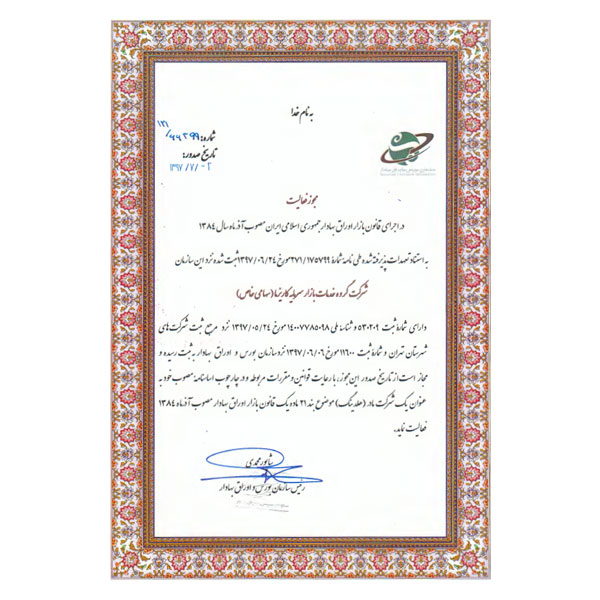 به نام خدا
شماره: ۱۲۱/۴۴۲۹۹
تاریخ صدور:
۱۳۹۷/۷/۰۲
مجوز فعالیت
در اجرای قانون بازار اوراق بهادار جمهوری اسلامی ایران مصوب آذر ماه سال ۱۳۸۴
به استناد تعهدات پذیرفته شده طی نامه شمارۀ ۲۷۱/۱۷۵۷۹۹ مورخ ۱۳۹۷/۰۶/۲۴ ثبت شده نزد این سازمان
شرکت گروه خدمات بازار سرمایه کاریزما (سهامی خاص)
دارای شمارۀ ثبت ۵۳۰۲۰۹ و شناسه ملی ۱۴۰۰۷۷۸۵۰۹۸ مورخ ۱۳۹۷/۰۵/۲۴ نزد مرجع ثبت شرکت‌های
شهرستان تهران و شمارۀ ثبت ۱۱۶۰۰ مورخ ۱۳۹۷/۰۶/۰۶ نزد سازمان بورس و اوراق بهادار به ثبت رسیده و
مجاز است از تاریخ صدور این مجوز، با رعایت قوانین و مقررات مربوطه و در چارچوب اساسنامۀ مصوب خود به
عنوان یک شرکت مادر (هلدینگ) موضوع بند ۲۱ ماده یک قانون بازار اوراق بهادار مصوب آذر ماه ۱۳۸۴
فعالیت نماید.
شاپور محمدی
رئیس سازمان بورس و اوراق بهادار